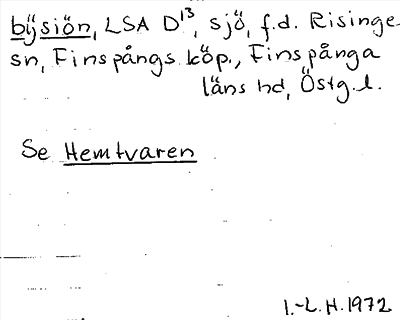 bijsiön, LSA D¹³, sjö, f.d. Risinge
sn, Finspångs köp., Finspånga
läns hd, Östg.l.
Se Hemtvaren
I.-L.H. 1972